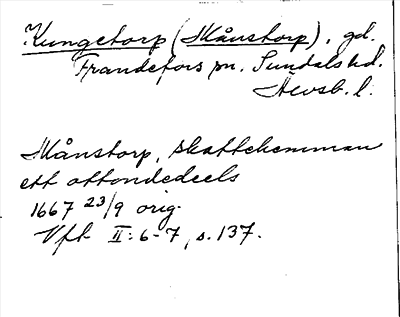 Kungetorp (Månstorp), gd.
Frändefors sn. Sundals hd.
Älvsb. l.
Månstorp, skattehemman
ett ottondedeels
1667 23/9 orig.
Vft II: 6-7, s. 137.